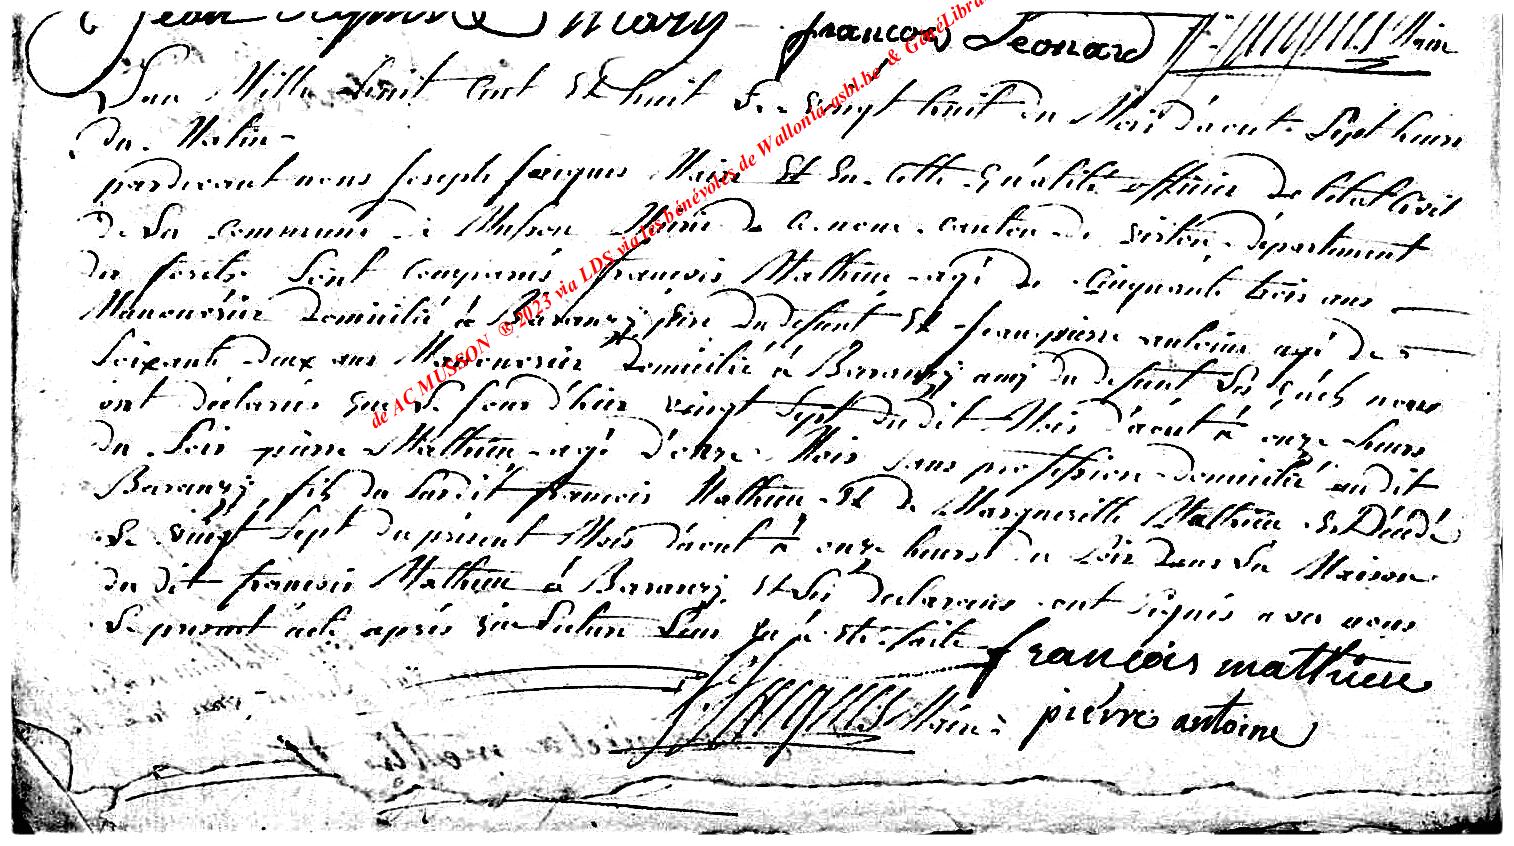 françois Leonard Maire
L'an Mille huit Cent Et huit Le vingt huit du Mois d'aout Sept heure
du Matin
pardevant nous Joseph Maire Et En Cette Qualité officier de l'etat Civil
de La commune de Musson Mairie de ce nom canton de virton departement
des forêts Sont Comparus françois Mathieu agé de Cinquante trois ans
Manouvrier domicilié à Baranzy père du defunt Et Jean pierre antoine agé de
Soixante deux ans Manouvrier domicilié à Baranzy amy du defunt Les quels nous
ont declarés que Le Jour d'hier vingt Sept du dit Mois d'aout à onze heures
du Soir pierre Mathieu agé d'onze Mois Sans profession domicilié au dit
Baranzy fils du Susdit françois Mathieu Et de Margueritte Mathieu Est Décédé
Le vingt Sept du présent Mois d'aout à onze heures du Soir dans La Maison
du dit françois Mathieu à Baranzy Et Les declarans ont Signés avec nous
Le present acte après que Lecture Leur En a été faite
françois mathieu
Maire pierre antoine
de AC MUSSON ® 2023 via LDS via les bénévoles de Wallonia-asbl.be & GénéLibra